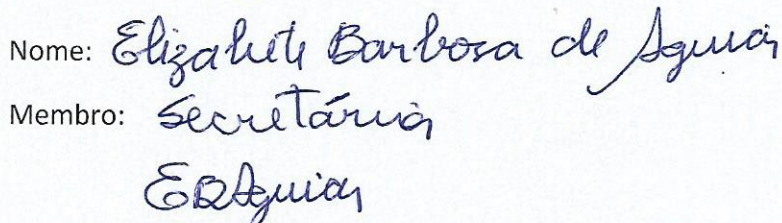 Nome: Elizabete Barbosa de Aguiar
Membro: Secretária
EBAguiar